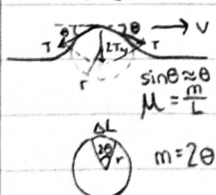 θ θ → V
T 2Ty T
r
sinθ≈θ
μ = m/L
ΔL
2θ r
m = 2θ